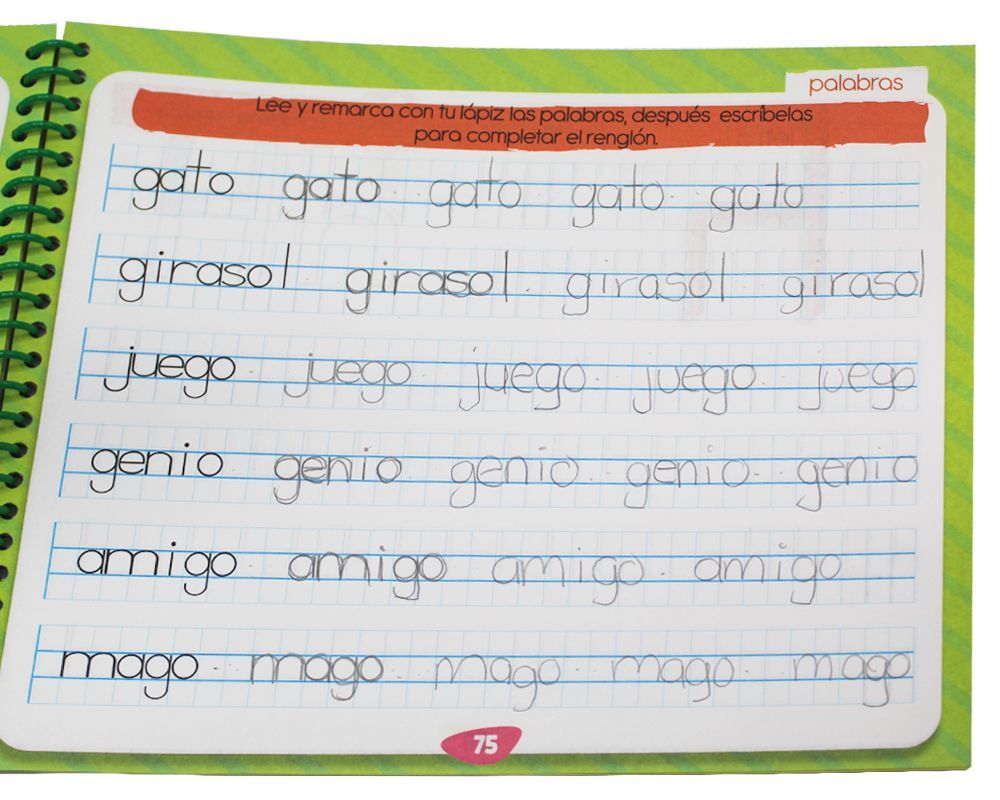 palabras
Lee y remarca con tu lápiz las palabras, después escríbelas
para completar el renglón.
gato gato gato gato gato
girasol girasol girasol girasol
juego juego juego juego juego
genio genio genio genio genio
amigo amigo amigo amigo
mago mago mago mago mago
75